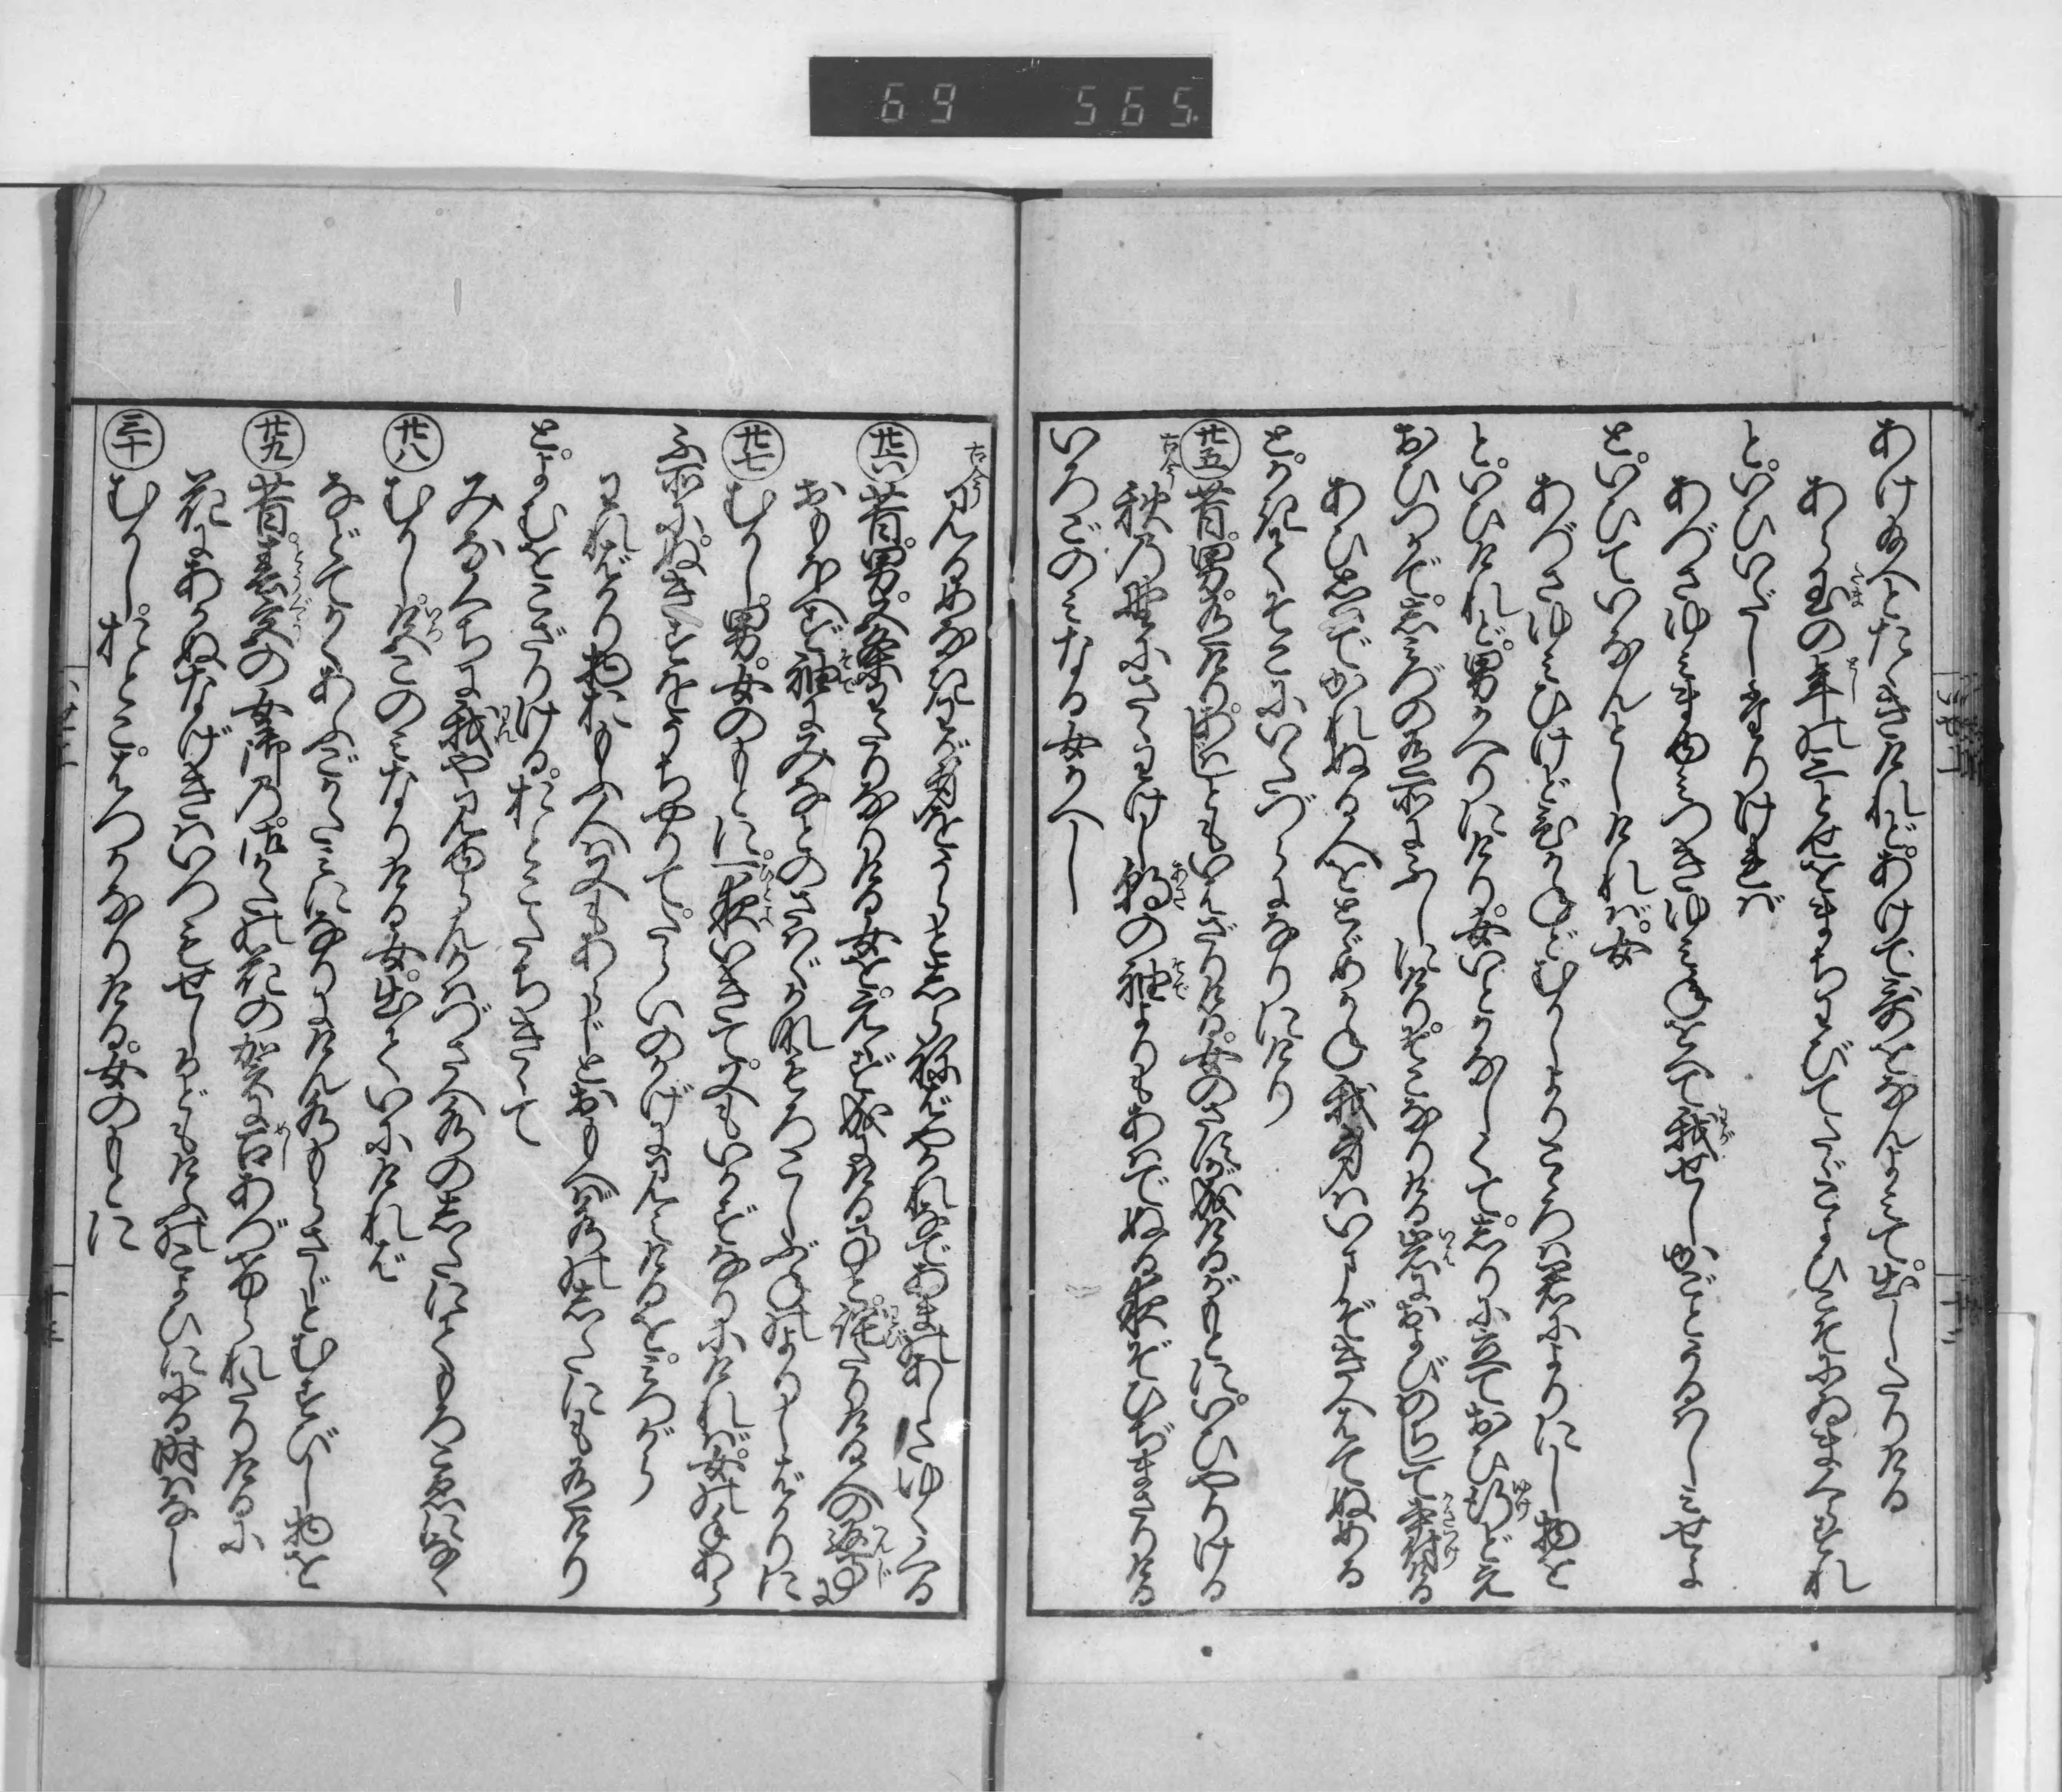 69 565
あけ給へとたゝきけれどあけで哥をなんよみて出したりける
あらたまの年の三とせをまちわびてたゞこよひこそにゐまくらすれ
といひいだしたりければ
あづさゆみまゆみつきゆみ年をへて我せしがごとうるはしみせよ
といひていなんとしければ女
あづさゆみひけどひかねどむかしよりこゝろは君によりにし物を
といひけれど男かへりにけり女いとかなしくてしりに立ておひ行どえ
おひつかでし水の有所にふしにけりそこなりける岩におよびのちして書付ける
あひ思はでかれぬる人をとゞめかね我身はいまぞきえはてぬめる
とかきてそこにいたづらになりにけり
廿五 昔男有けりあはじともいはざりける女のさすが成けるがもとにいひやりける
古今 秋の野にさゝわけし朝の袖よりもあはでぬる夜ぞひぢまさりける
いろごのみなる女かへし
古今 みるめなきわが身をうらとしらねばやかれなであまのあしたゆくくる
廿六 昔男五条わたりなりける女をえゝず成にける事と侘たりける人の返事に
おもほえず袖にみなとのさわぐかなもろこしぶねのよりしばかりに
廿七 むかし男女のもとに一夜いきて又もいかずなりにければ女の手あら
ふ所にぬきすをうちやりてたらひのかげに見えけるをみづから
我ばかり物おもふ人は又もあらじとおもへば水の下にも有けり
とよむをこざりけるおとこたちきゝて
みなくちに我や見ゆらんかはづさへ水の下にてもろこゑになく
廿八 むかし色ごのみなりける女出ていにければ
などてかくあふごかたみになりにけん水もらさじとむすびし物を
廿九 昔春宮の女御の御かたの花の賀に召あづけられたりけるに
花にあかぬなげきはいつもせしかどもけふのこよひににる時はなし
三十 むかしおとこはつかなりける女のもとに